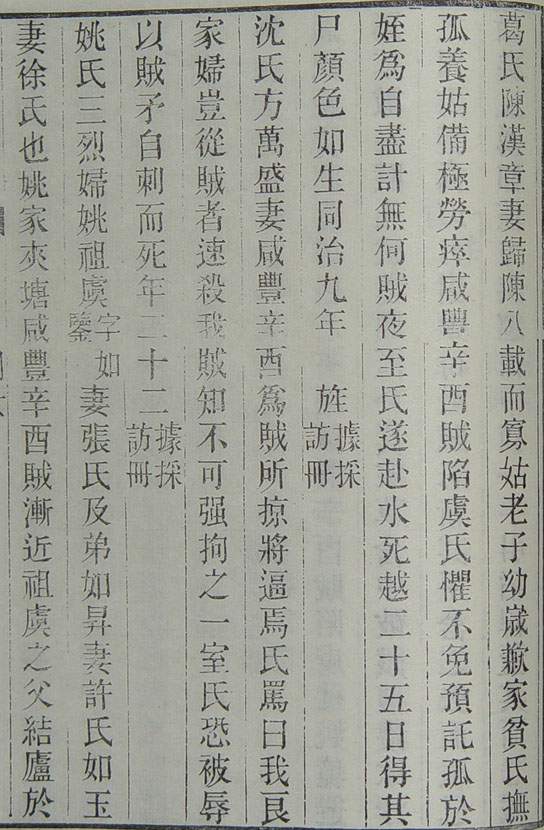 葛氏陳漢章妻歸陳八載而寡姑老子幼歲歉家貧氏撫
孤養姑備極勞瘁咸豐辛酉賊陷虞氏懼不免預託孤於
姪爲自盡計無何賊夜至氏遂赴水死越二十五日得其
尸顏色如生同治九年　旌據採訪冊
沈氏方萬盛妻咸豐辛酉爲賊所掠將逼焉氏罵曰我良
家婦豈從賊者速殺我賊知不可强拘之一室氏恐被辱
以賊矛自刺而死年二十二據採訪冊
姚氏三烈婦姚祖虞字如鑒妻張氏及弟如昇妻許氏如玉
妻徐氏也姚家夾塘咸豐辛酉賊漸近祖虞之父結廬於